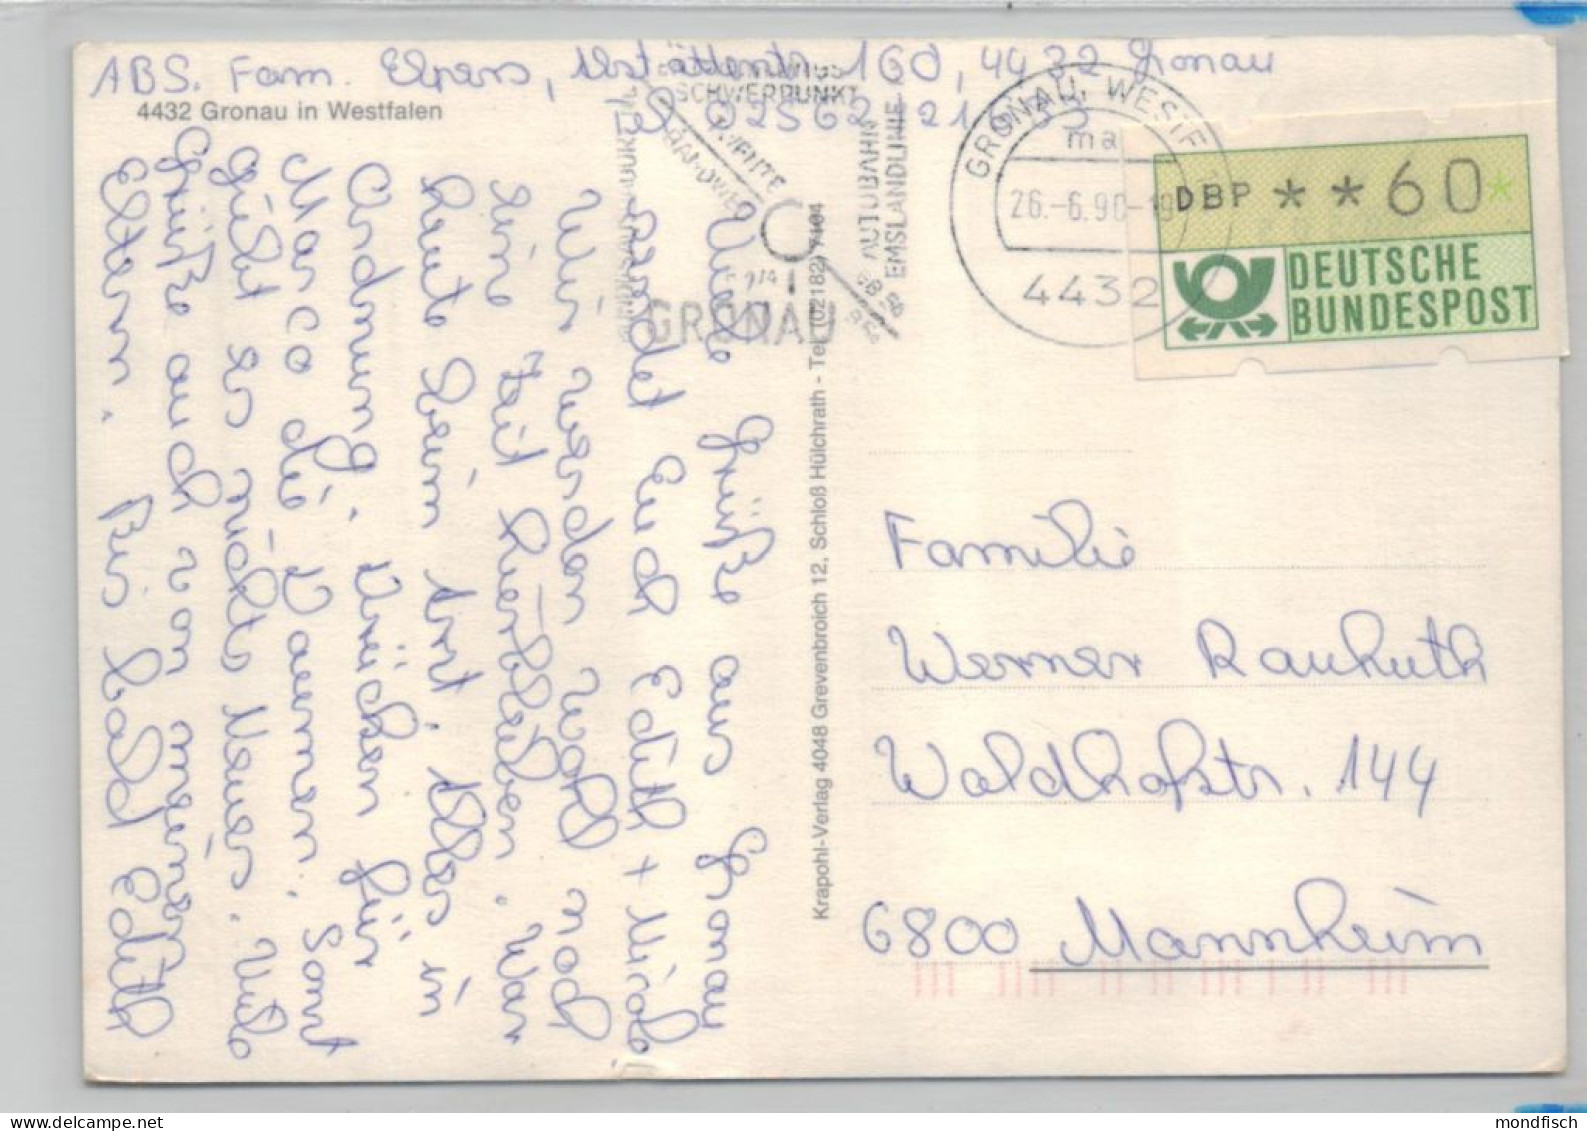 ABS. Fam. Elpers, 160, 4432 Gronau
02562
4432 Gronau in Westfalen
SCHWERPUNKT
AUTOBAHN
EMSLANDLINIE
GRONAU
GRONAU, WESTF
ma
26.-6.90-19
4432
DBP **60*
DEUTSCHE
BUNDESPOST
Viele Grüße aus Gronau
sendet Euch Edith +
Wir werden wohl noch
eine Zeit hierbleiben. War
heute beim Arzt. Alles in
Ordnung. Drücken für
Marco die Daumen. Sonst
gibt es nichts Neues. Viele
Grüße auch von meinen
Eltern. Bis bald Edith
Krapohl-Verlag 4048 Grevenbroich 12, Schloß Hülchrath - Tel. (02182)
Familie
Werner Rauhuth
Waldhofstr. 144
6800 Mannheim
mondfisch